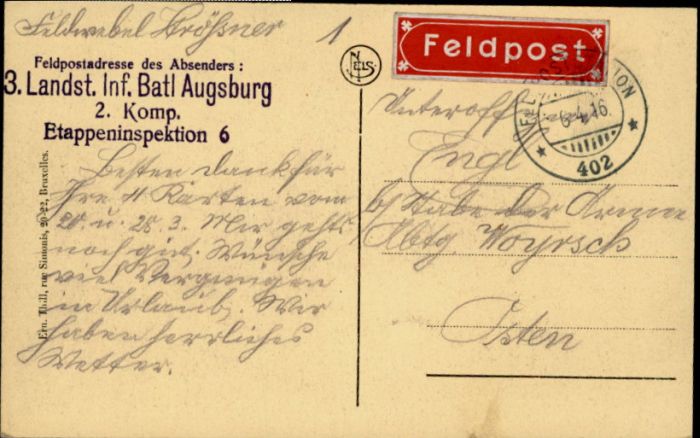 Feldwebel Größner
1
Feldpostadresse des Absenders:
3. Landst. Inf. Batl Augsburg
2. Komp.
Etappeninspektion 6
Besten dank für
Ihre 4 Karten vom
u. 28. 3. Mir gehts
noch gut. Wünsche
viel Vergnügen
in Urlaub. Wir
haben herrliches
Wetter.
Ern. Thill, rue Simonis, 20-22, Bruxelles.
NELS
Feldpost
6.4.16.
402
Unteroff
Engl
b/ Stabe der Armee
Abtg. Woyrsch
Osten